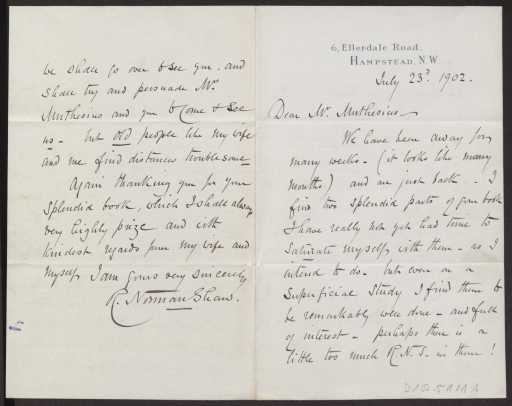 6, Ellerdale Road,
Hampstead, N.W.
July 23rd 1902.
Dear Mr. Muthesius
We have been away for
many weeks - (it looks like many
months) and are just back. - I
find two splendid parts of your book
I have really not yet had time to
saturate myself with them - as I
intend to do - but even on a
superficial study I find them to
be remarkably well done - and full
of interest - perhaps there is a
little too much R.N.S. in them!
we shall go over & see you. and
shall try and persuade Mrs.
Muthesius and you to come & see
us - but old people like my wife
and me find distances troublesome
Again thanking you for your
splendid book, which I shall always
very highly prize and with
kindest regards from my wife and
myself I am yours very sincerely
R. Norman Shaw.